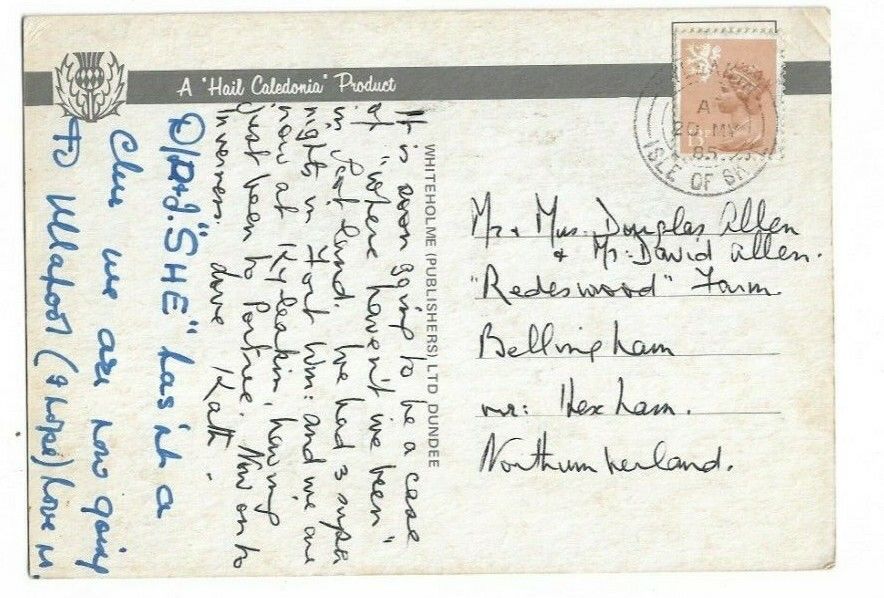 A "Hail Caledonia" Product
It is soon going to be a case
of "where haven't we been"
in Scotland. We had 3 super
nights in Fort Wm: and we are
now at Kyleakin, having
just been to Portree. Now on to
Inverness. Love Kath.
D/D+J. "SHE" has'nt a
Clue we are now going
To Ullapool (I hope) Love M
WHITEHOLME (PUBLISHERS) LTD DUNDEE
A
20 MY
85
ISLE OF SK
13
Mr + Mrs. Douglas Allen
+ Mr: David Allen.
"Redeswood" Farm.
Bellingham
nr: Hexham.
Northumberland.